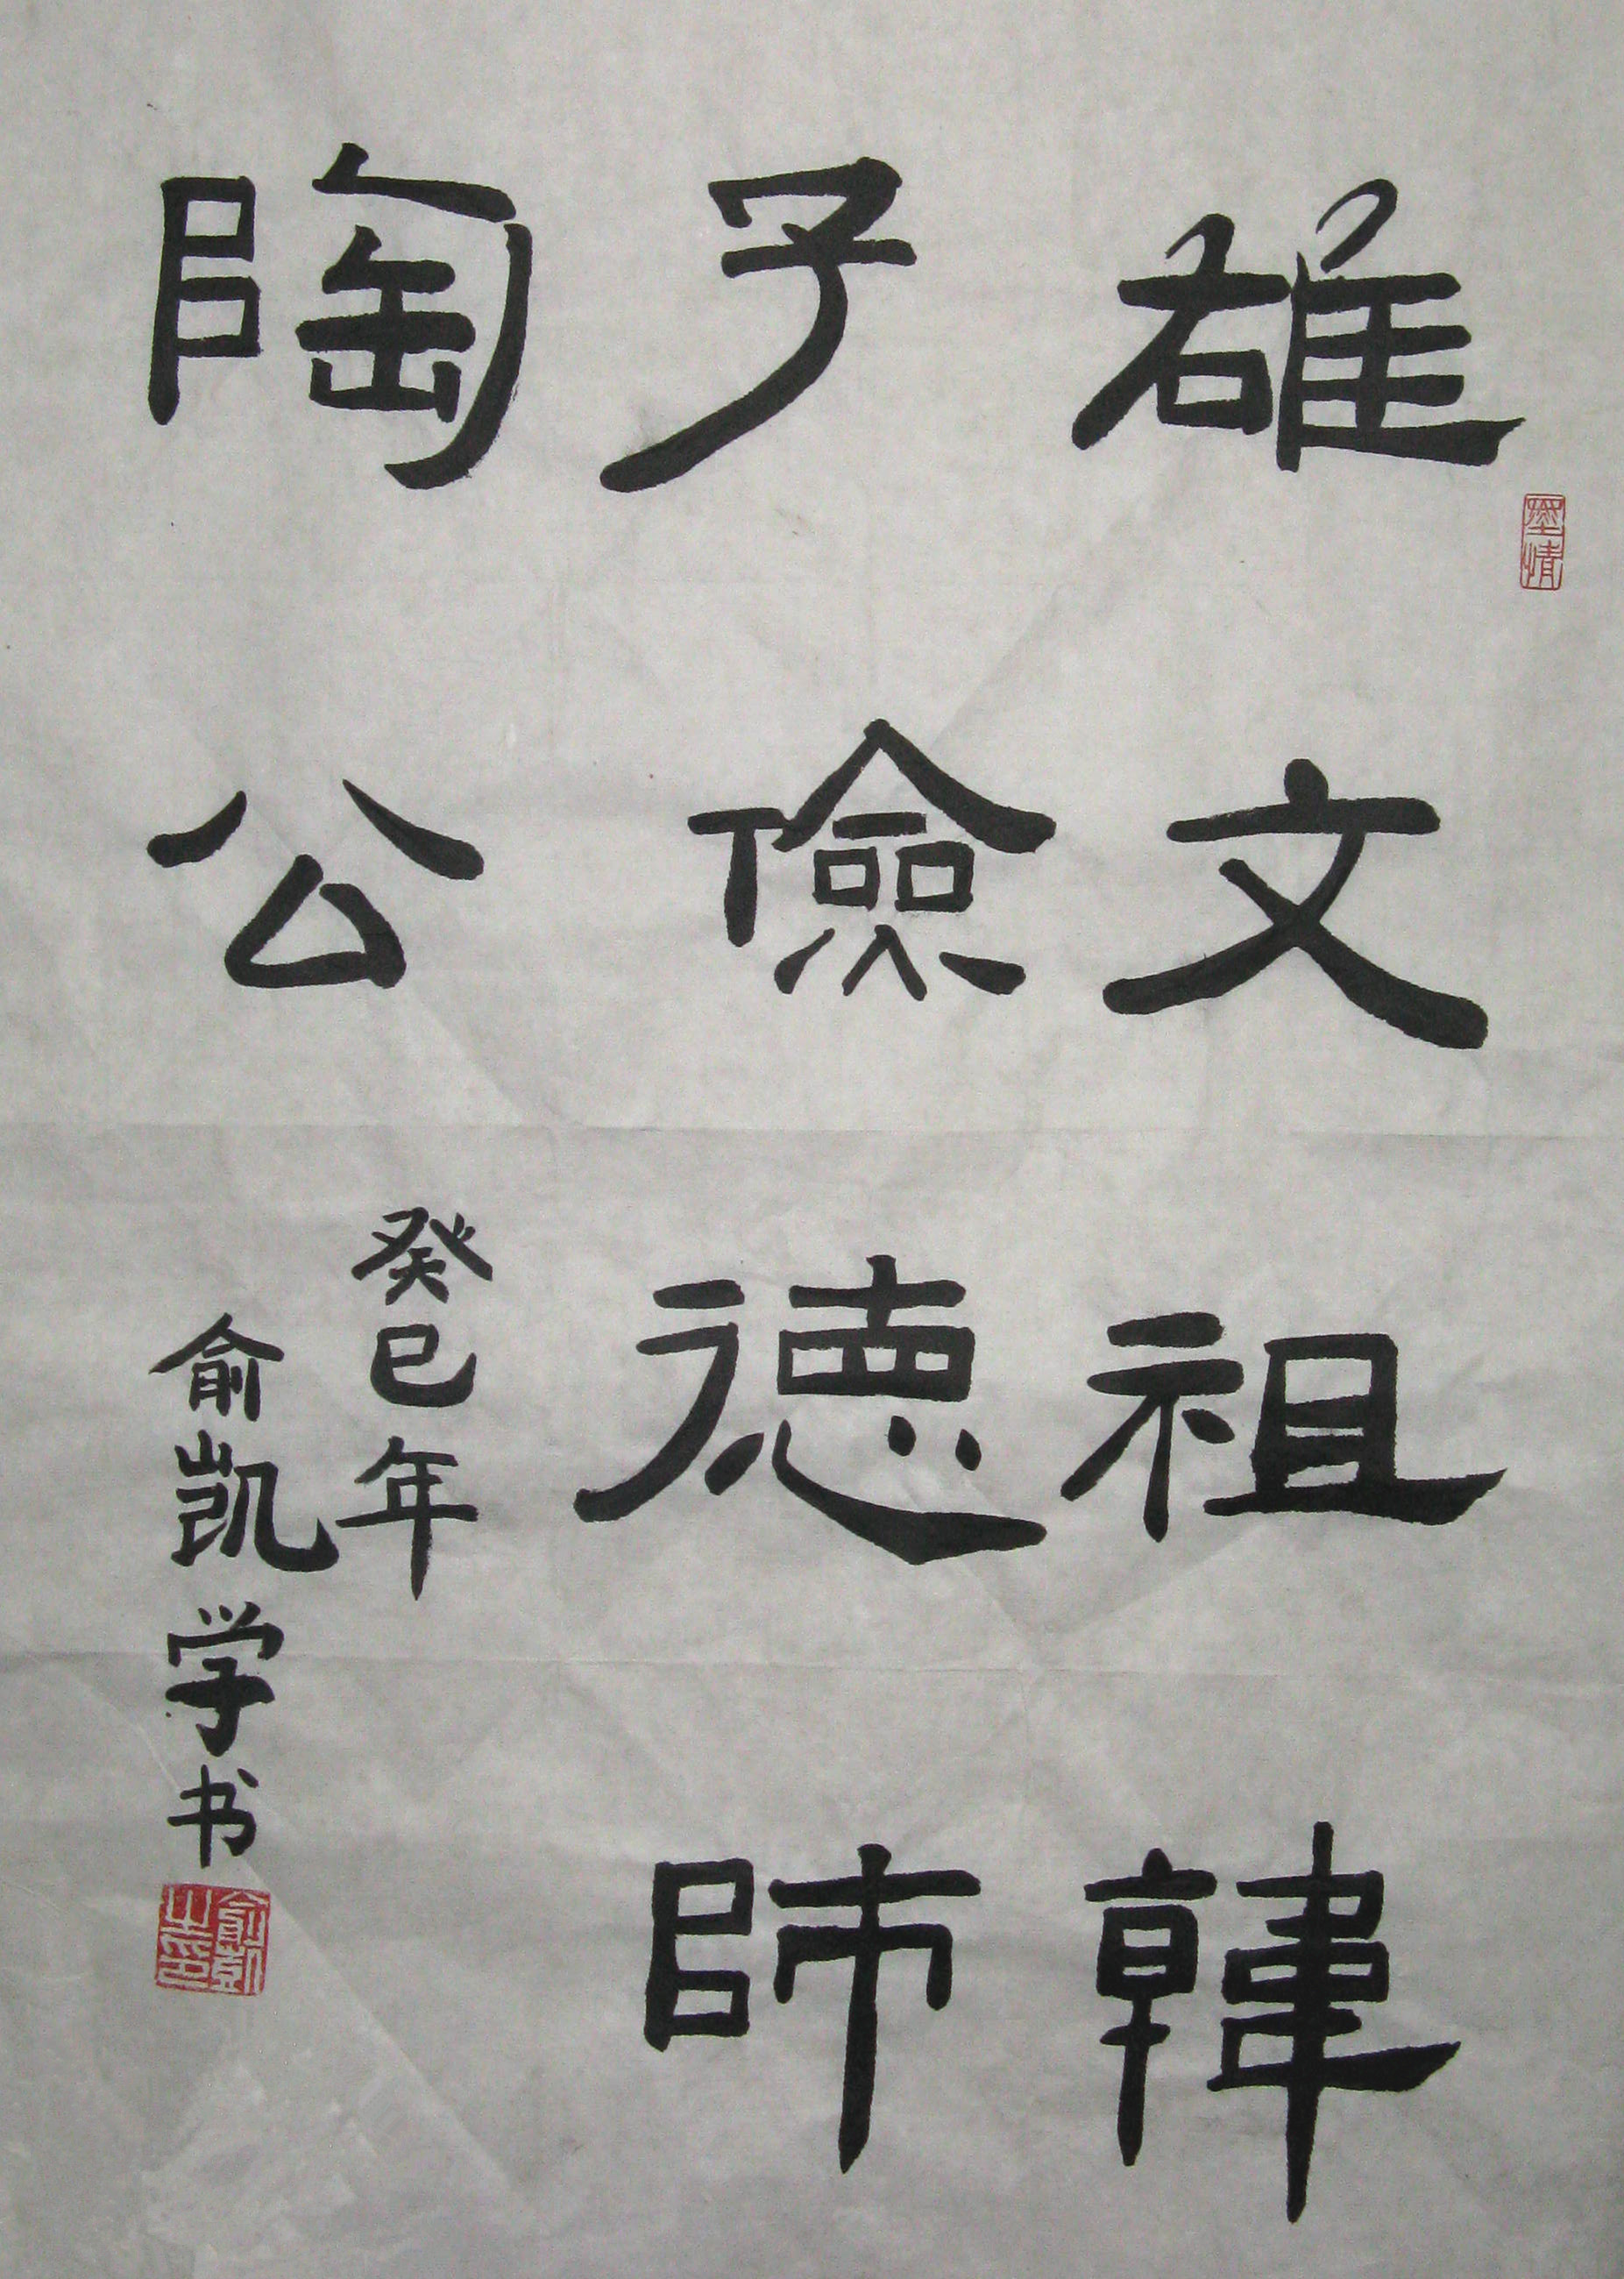 雄文祖韓
子儉德師
陶公
癸巳年
俞凯学书
墨情
俞凱之印